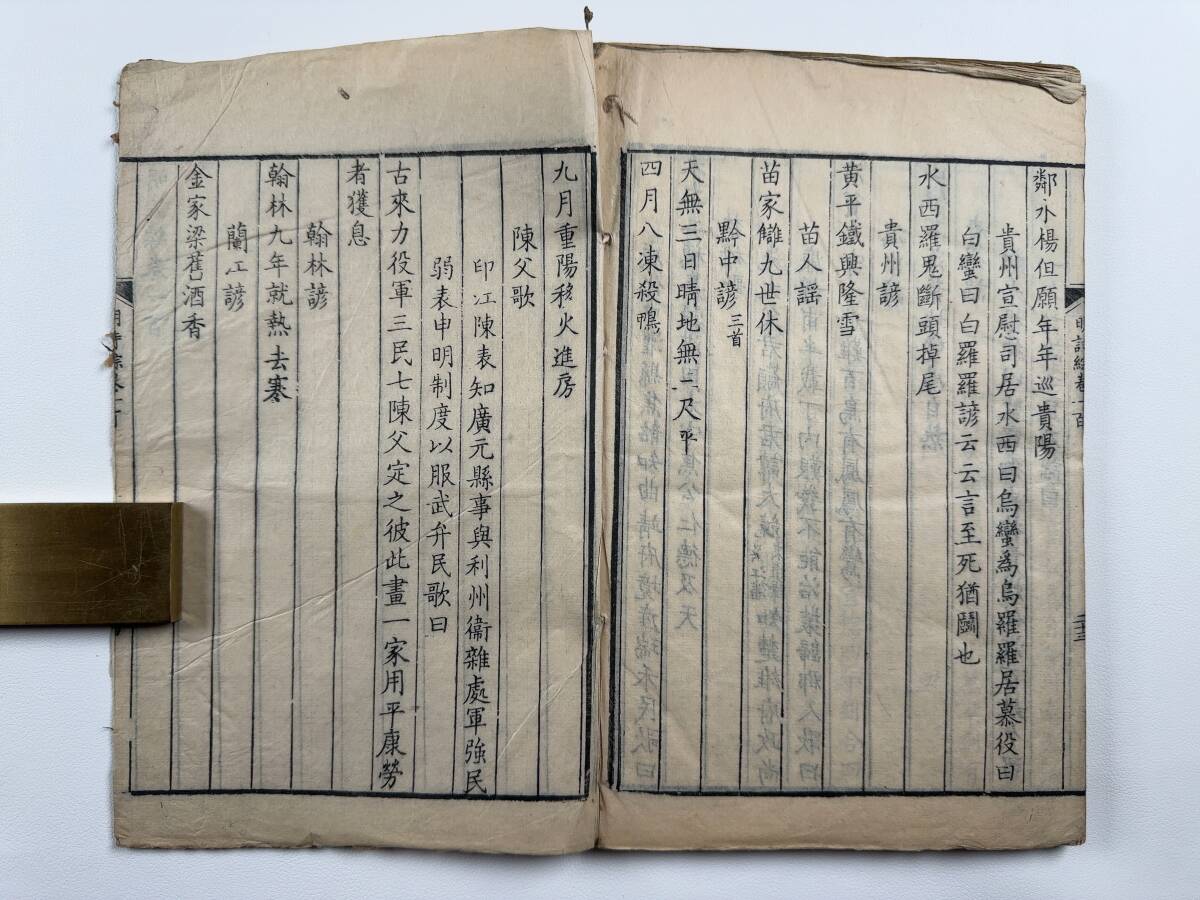 明詩綜卷一百
鄰水楊但願年年巡貴陽
貴州宣慰司居水西曰烏蠻爲烏羅羅居慕役曰
白蠻曰白羅羅諺云云言至死猶鬭也
水西羅鬼斷頭掉尾
貴州諺
黃平鐵興隆雪
苗人謡
苗家讎九世休
黔中諺三首
天無三日晴地無二尺平
四月八凍殺鴨
九月重陽移火進房
陳父歌
印江陳表知廣元縣事與利州衞雜處軍強民
弱表申明制度以服武弁民歌曰
古來力役軍三民七陳父定之彼此畫一家用平康勞
者獲息
翰林諺
翰林九年就熱去寒
蘭江諺
金家梁舊酒香